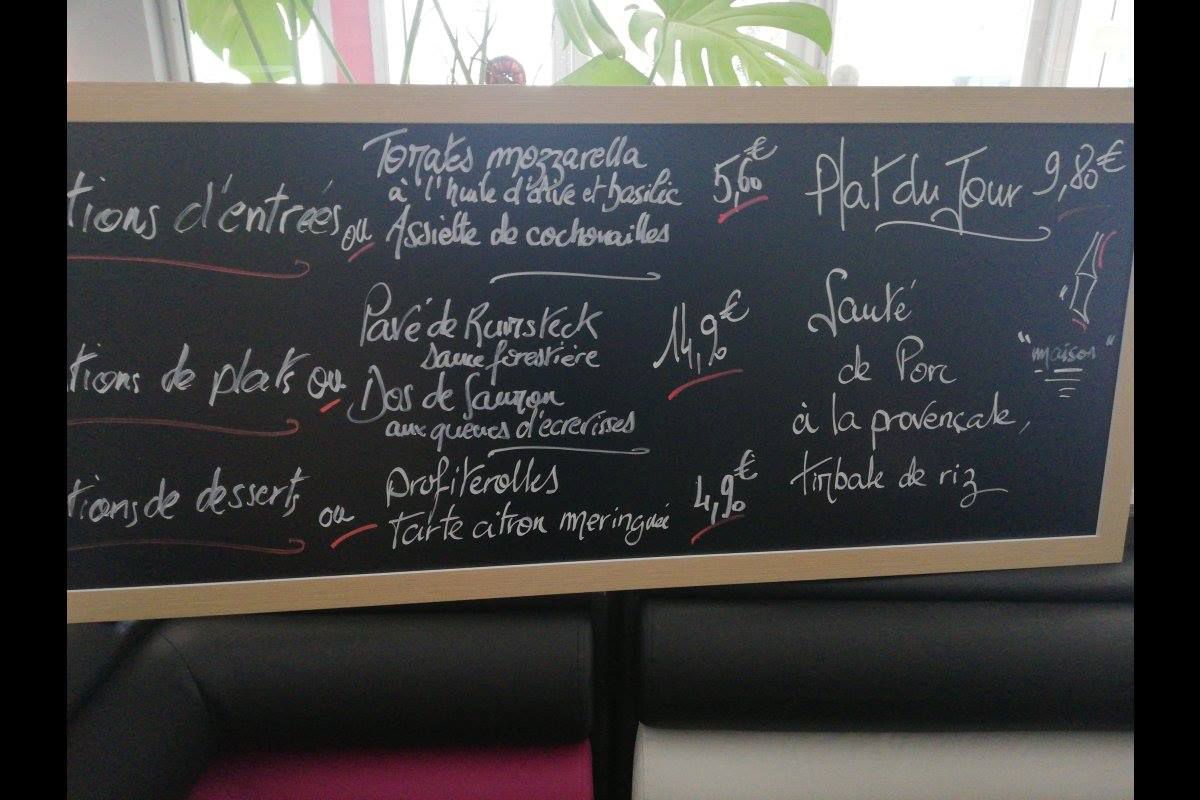 tions d'entrées
ou
Tomates mozzarella
à l'huile d'olive et basilic
Assiette de cochonailles
5,60€
tions de plats
ou
Pavé de Rumsteck
sauce forestière
Dos de Saumon
aux queues d'écrevisses
14,90€
tions de desserts
ou
Profiterolles
tarte citron meringuée
4,90€
Plat du Jour 9,80€
Sauté
de Porc
à la provençale,
timbale de riz
"maison"